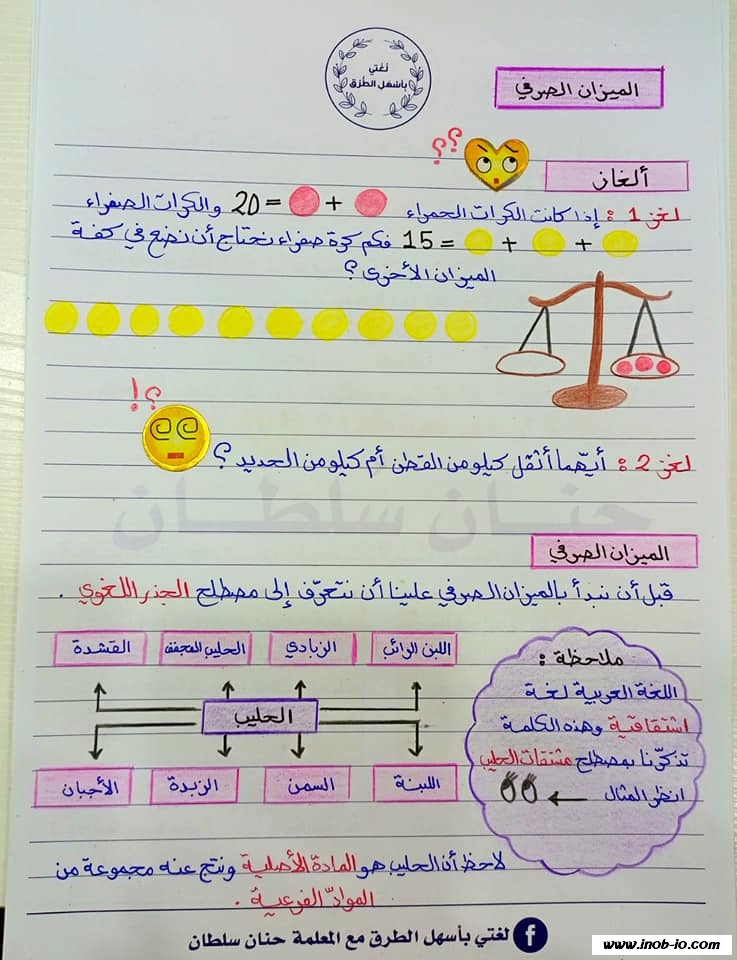 لغتي
بأسهل الطرق
الميزان الصرفي
؟؟
ألغاز
لغز 1 : إذا كانت الكرات الحمراء + = 20 والكرات الصفراء
+ + = 15 فكم كرة صفراء نحتاج أن نضع في كفة
الميزان الأخرى ؟
؟!
لغز 2 : أيّهما أثقل كيلو من القطن أم كيلو من الحديد ؟
حنان سلطان
الميزان الصرفي
قبل أن نبدأ بالميزان الصرفي علينا أن نتعرّف إلى مصطلح الجذر اللغوي .
اللبن الرائب
الزبادي
الحليب المجفف
القشدة
الحليب
اللبنة
السمن
الزبدة
الأجبان
ملاحظة :
اللغة العربية لغة
اشتقاقية وهذه الكلمة
تذكّرنا بمصطلح مشتقات الحليب
انظر المثال
لاحظ أن الحليب هو المادة الأصلية ونتج عنه مجموعة من
الموادّ الفرعية .
لغتي بأسهل الطرق مع المعلمة حنان سلطان
www.inob-io.com